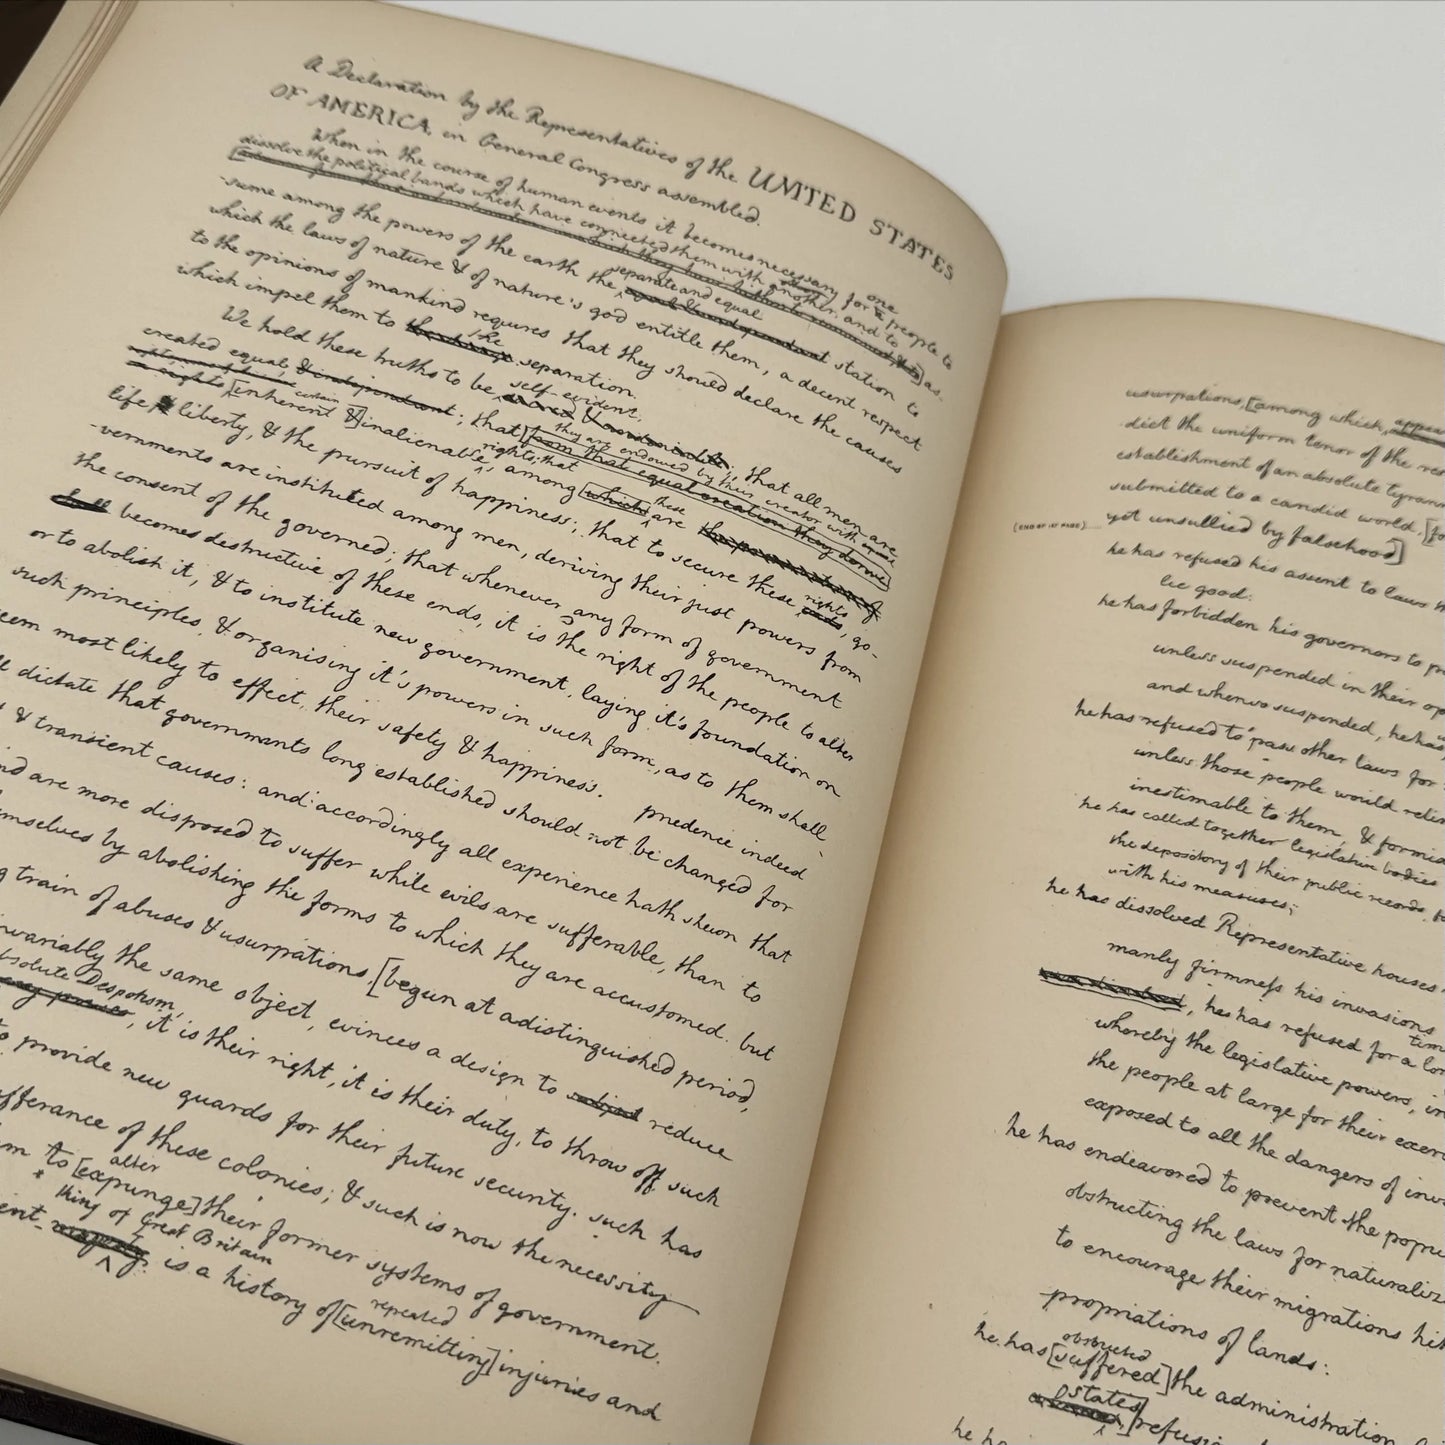 A Declaration by the Representatives of the UNITED STATES
OF AMERICA, in General Congress assembled.
When in the course of human events it becomes necessary for one people to
dissolve the political bands which have connected them with another, and to
-sume among the powers of the earth the separate and equal station to
which the laws of nature & of nature's god entitle them, a decent respect
to the opinions of mankind requires that they should declare the causes
which impel them to the separation.
We hold these truths to be self-evident; that all men are
created equal, & independent; that they are endowed by their creator with
[from that equal creation they derive
rights [inherent &] inalienable certain rights; that among [which] these are
life, liberty, & the pursuit of happiness; that to secure these rights, go-
-vernments are instituted among men, deriving their just powers from
the consent of the governed; that whenever any form of government
becomes destructive of these ends, it is the right of the people to alter
or to abolish it, & to institute new government, laying it's foundation on
such principles, & organising it's powers in such form, as to them shall
seem most likely to effect their safety & happiness. prudence indeed
dictate that governments long established should not be changed for
& transient causes: and accordingly all experience hath shewn that
are more disposed to suffer while evils are sufferable, than to
by abolishing the forms to which they are accustomed. but
train of abuses & usurpations, [begun at a distinguished period,
the same object, evinces a design to subject reduce
absolute Despotism,
, it is their right, it is their duty, to throw off such
to provide new guards for their future security. such has
sufferance of these colonies; & such is now the necessity
to alter [expunge] their former systems of government.
king of Great Britain
majesty is a history of repeated [unremitting] injuries and
usurpations, [among which,
dict the uniform tenor of the
establishment of an absolute
submitted to a candid world, [
(END OF 1ST PAGE) yet unsullied by falsehood]
he has refused his assent to laws
lic good:
he has forbidden his governors to
unless suspended in their
and when so suspended, he has
he has refused to pass other laws for
unless those people would
inestimable to them, &
he has called together legislative bodies
the depository of their public records,
with his measures;
he has dissolved Representative houses
manly firmness his invasions
time
, he has refused for a
whereby the legislative powers,
the people at large for their
exposed to all the dangers of
he has endeavored to prevent the
obstructing the laws for
to encourage their migrations
-propriations of lands:
obstructed
he has [suffered] the administration
states
he